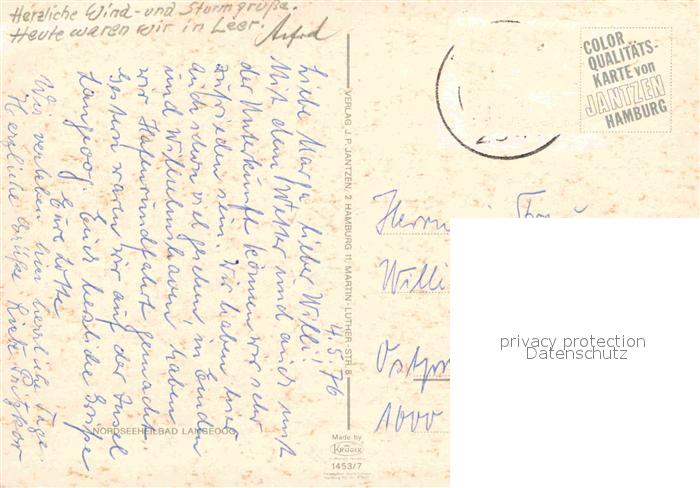 Herzliche Wind- und Sturmgrüße.
Heute waren wir in Leer.
4.5.76
Liebe Marga, lieber Willi!
Mit dem Wetter und auch mit
der Unterkunft können wir sehr
zufrieden sein. Wir haben hier
auch schon viel gesehen, in Emden
und Wilhelmshaven haben
wir Hafenrundfahrt gemacht.
Gestern waren wir auf der Insel
Langeoog. Euch herzliche Grüße
Eure
Wir verleben hier herrliche Tage.
Herzliche Grüße
NORDSEEHEILBAD LANGEOOG
VERLAG J. P. JANTZEN, 2 HAMBURG 11, MARTIN-LUTHER-STR. 8
Made by
KRÜGER
1453/7
COLOR
QUALITÄTS-
KARTE von
JANTZEN
HAMBURG
Herrn
Willi
1000
privacy protection
Datenschutz